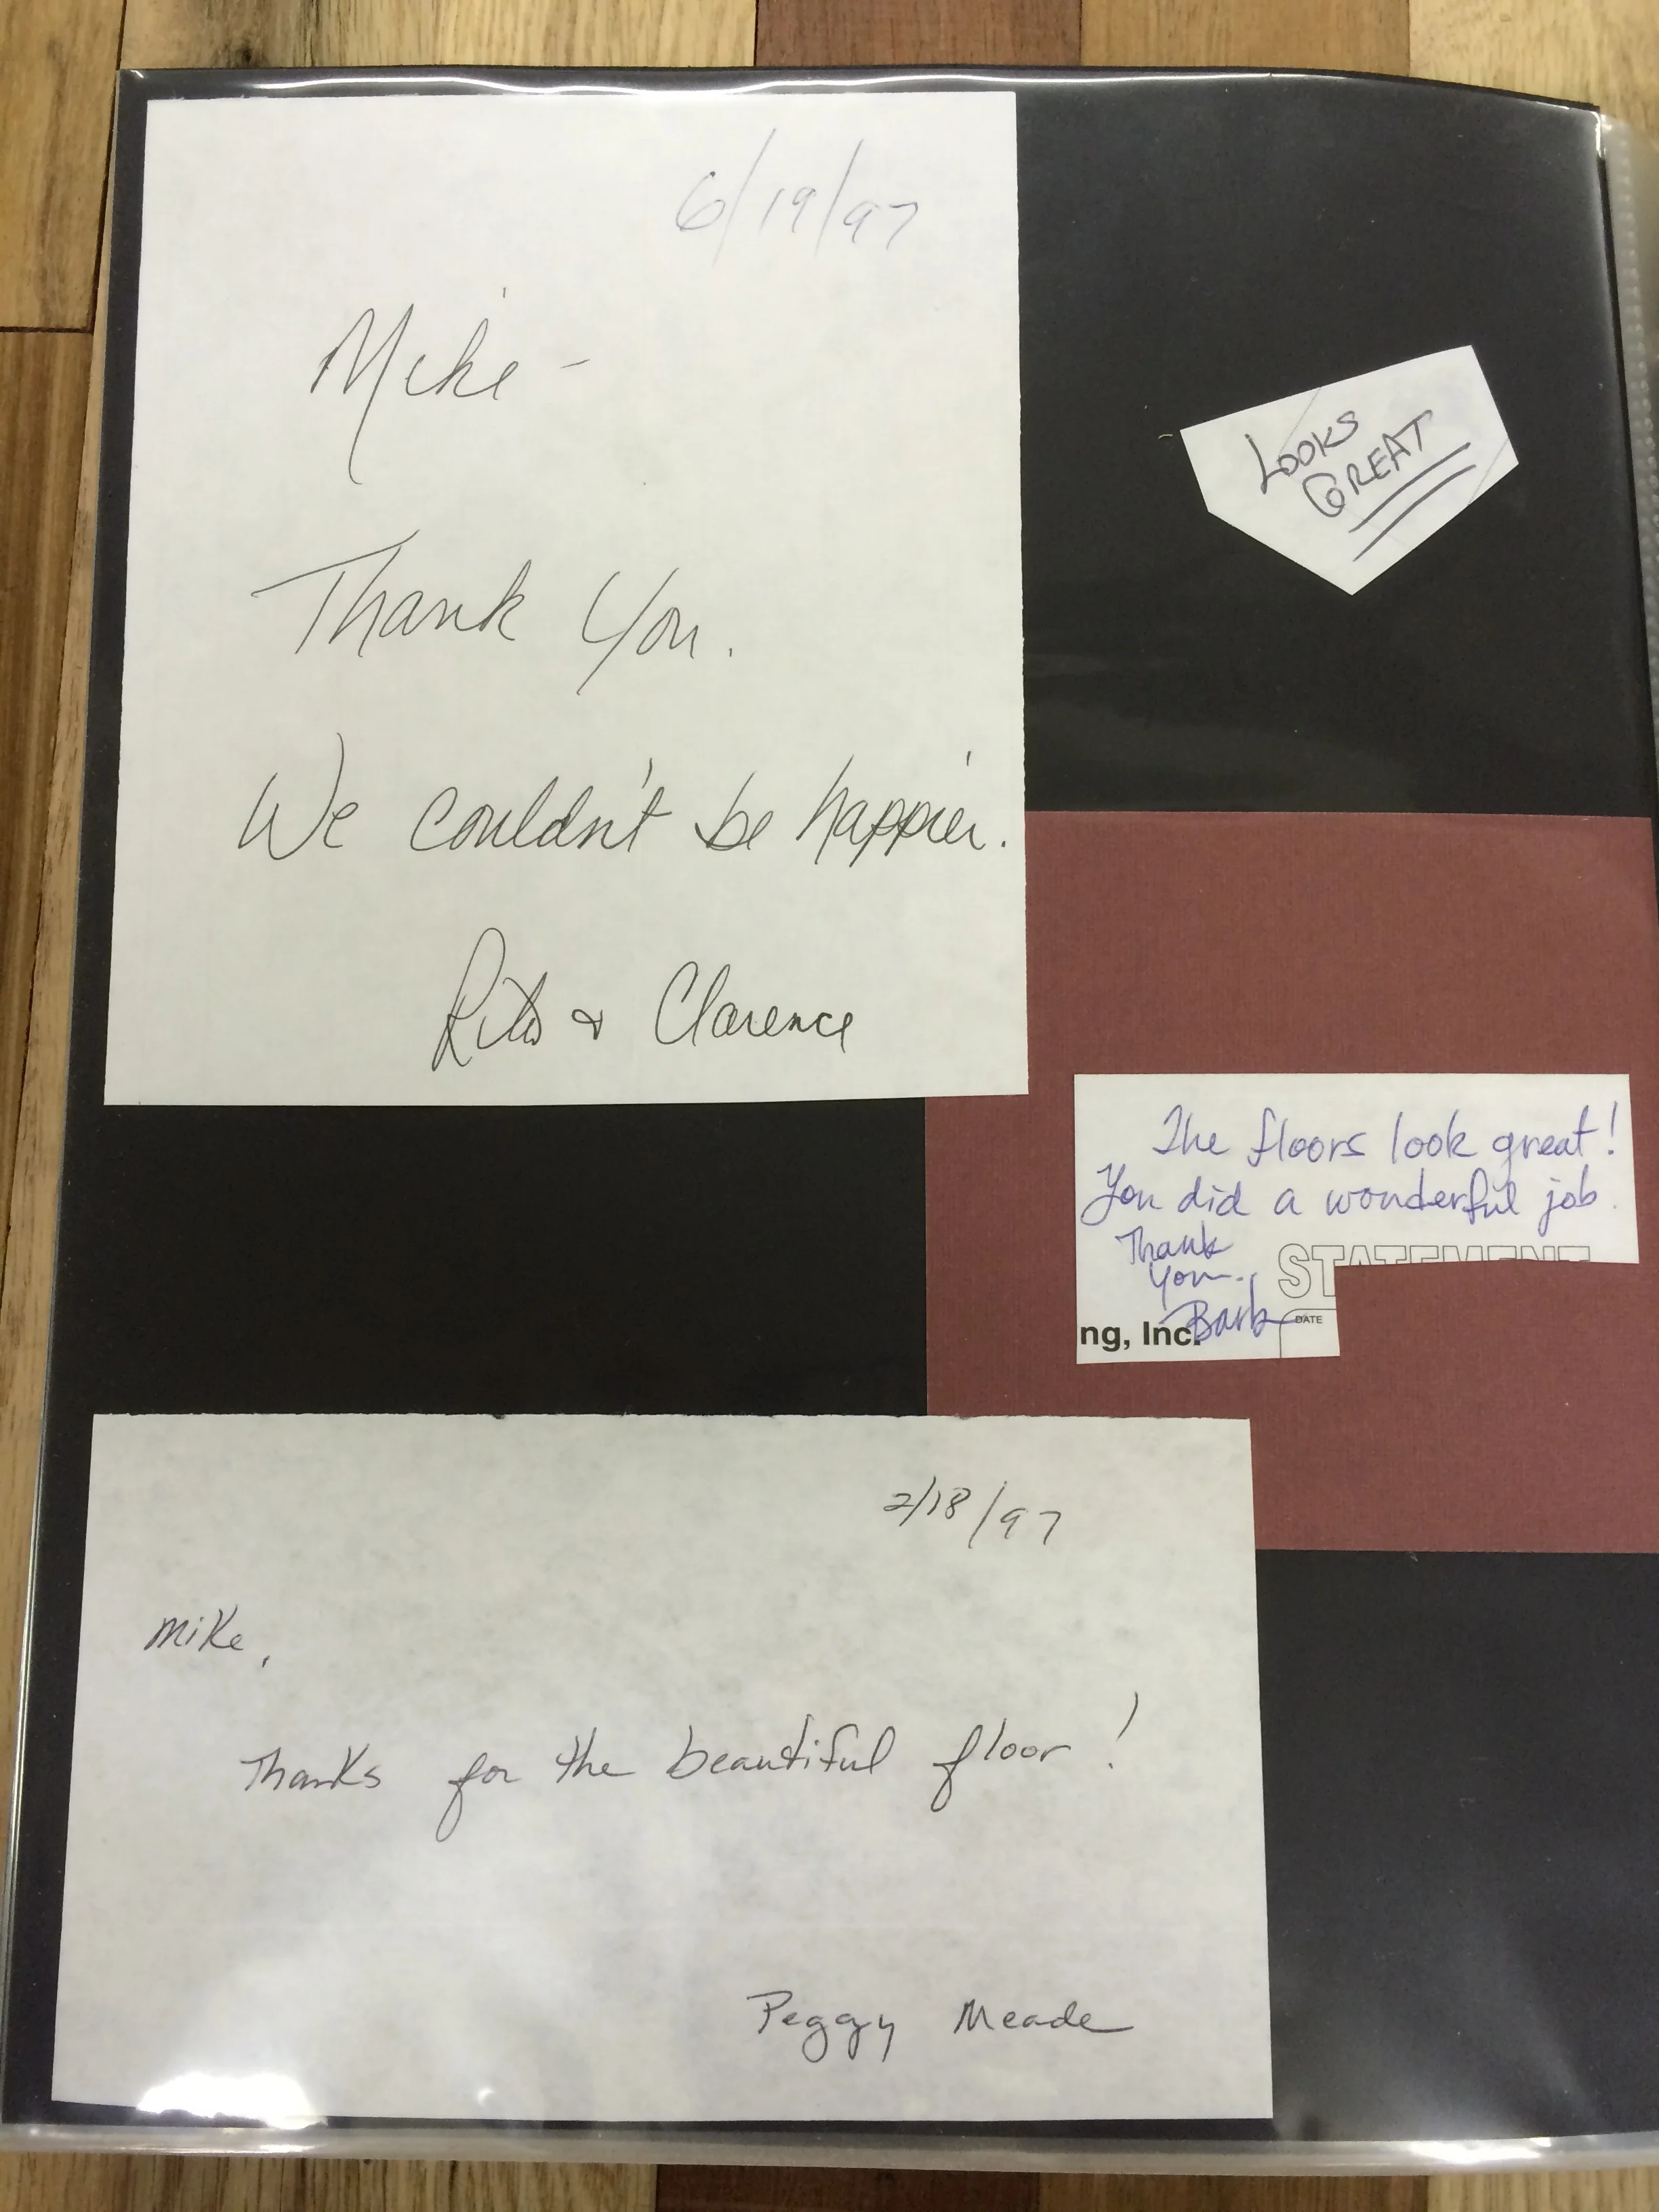 6/19/97
Mike -
Thank You.
We couldn't be happier.
Rita & Clarence
LOOKS
GREAT
The floors look great!
You did a wonderful job.
Thank
You.
Barb
STATEMENT
DATE
ng, Inc.
2/18/97
Mike,
Thanks for the beautiful floor!
Peggy Meade